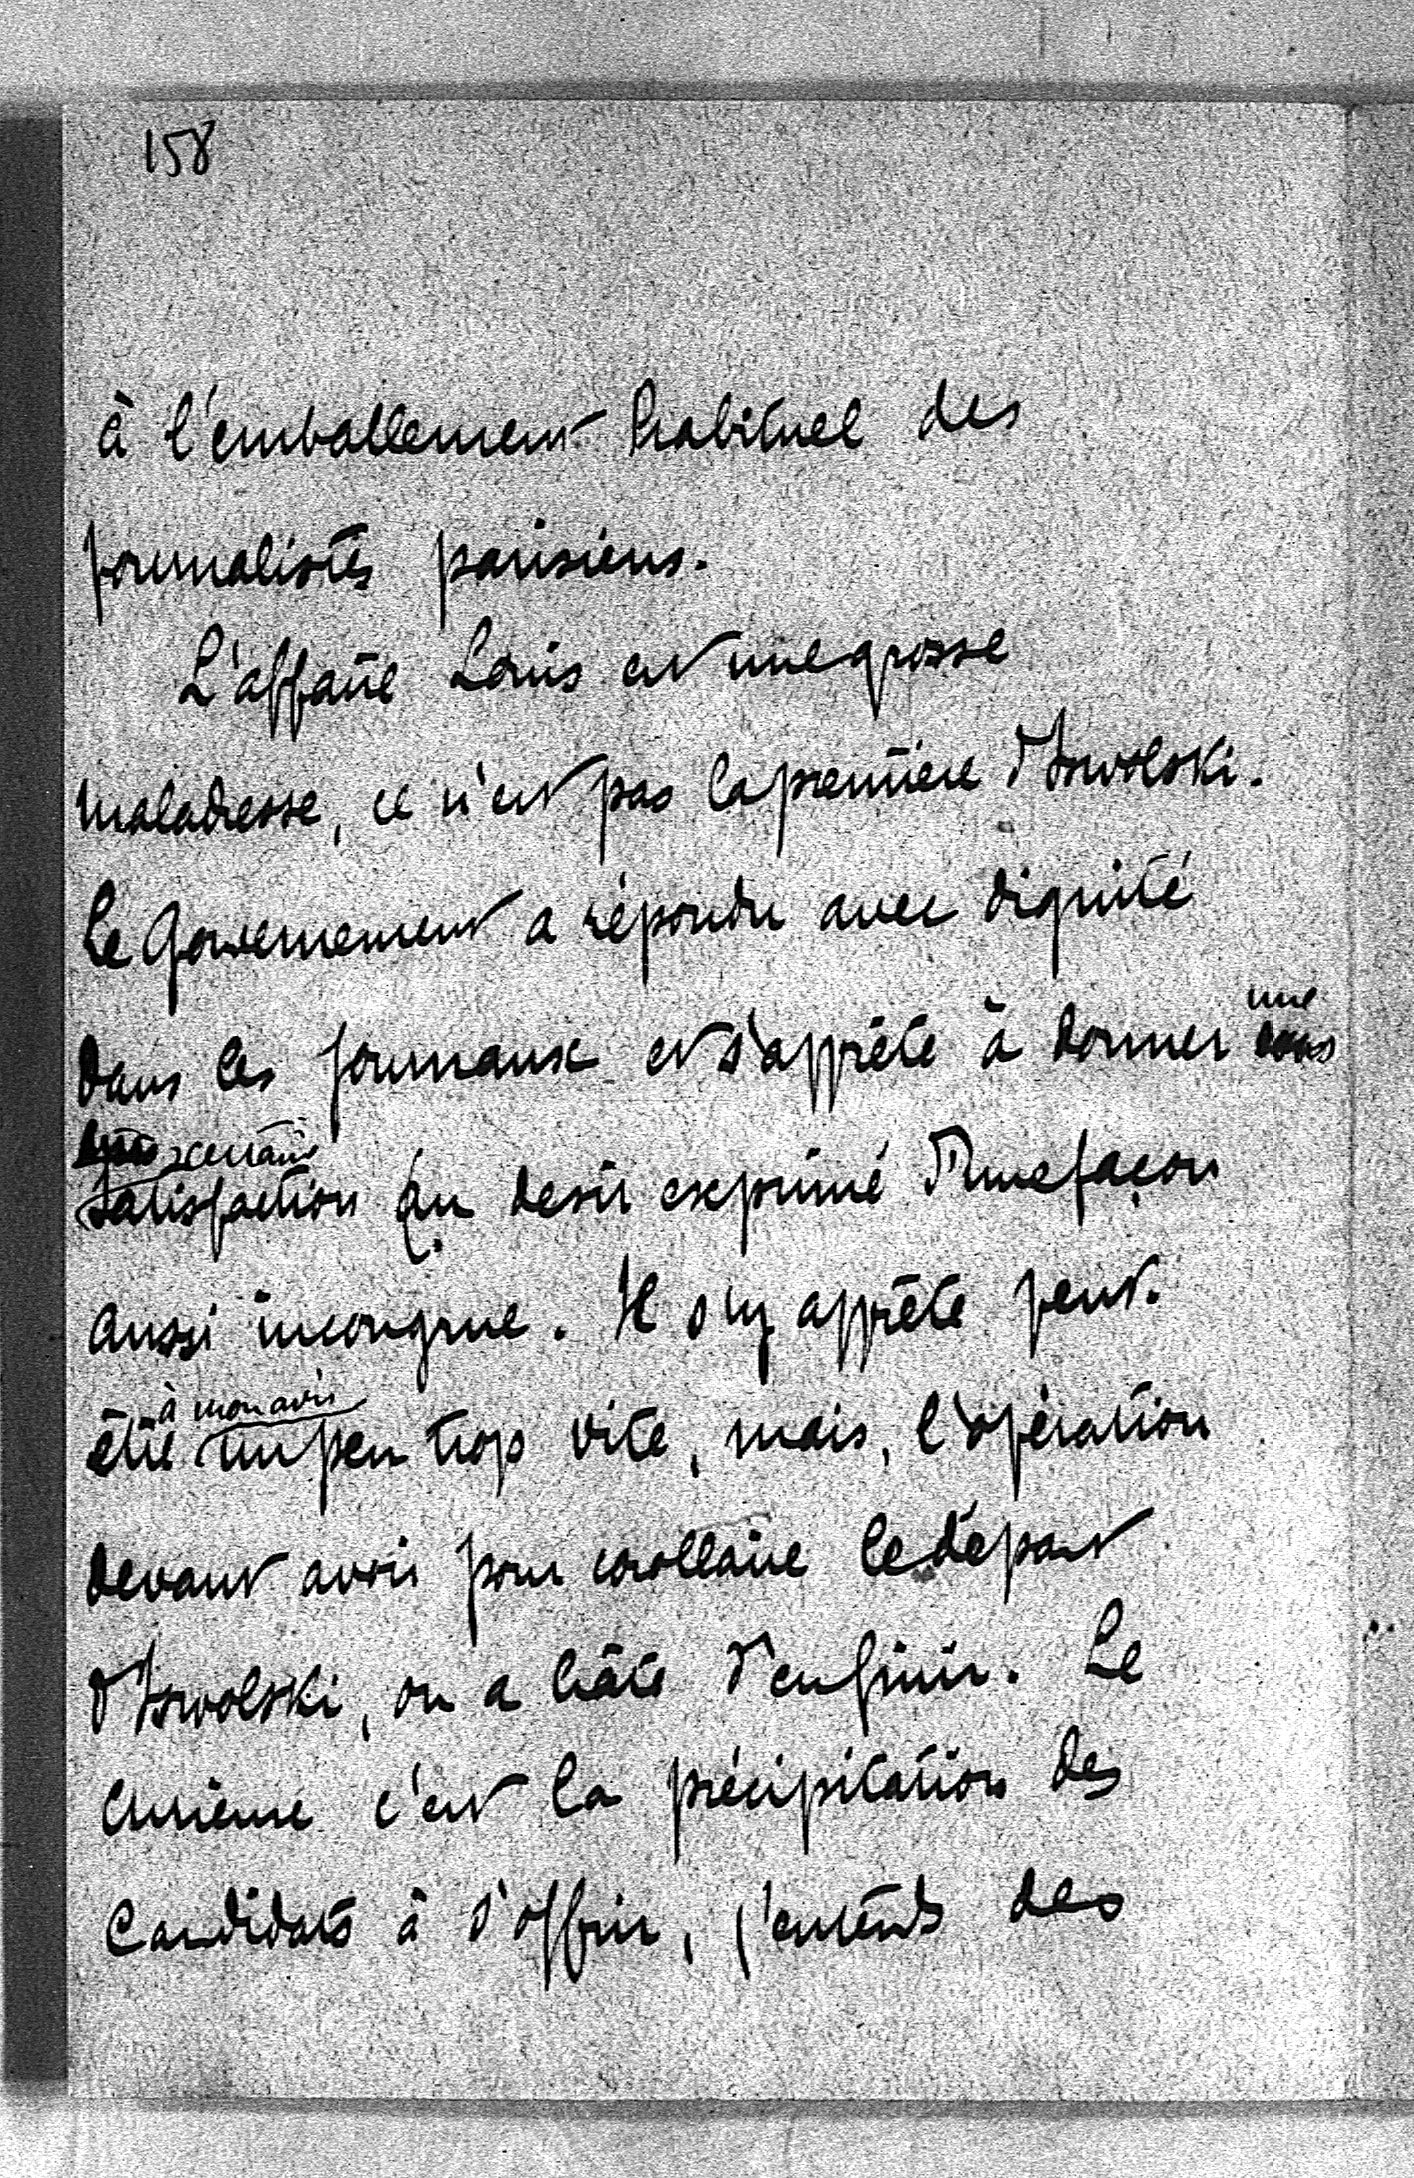 158
à l'emballement habituel des
journalistes parisiens.
L'affaire Louis est une grosse
maladresse, ce n'est pas la première d'Iswolski.
Le Gouvernement a répondu avec dignité
dans les journaux et s'apprête à donner une
certaine
satisfaction au désir exprimé d'une façon
aussi incongrue. Il s'y apprête peut-
à mon avis
être un peu trop vite, mais, l'opération
devant avoir pour corollaire le départ
d'Iswolski, on a hâte d'en finir. Le
curieux c'est la précipitation des
candidats à s'offrir, j'entends des